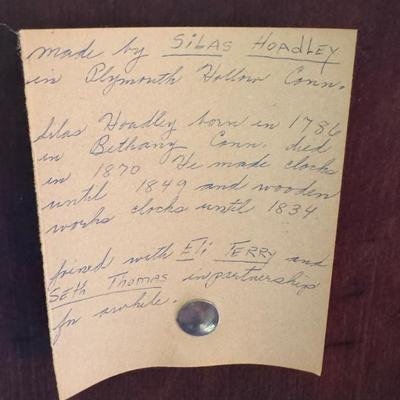 made by SILAS HOADLEY
in Plymouth Hollow Conn.
Silas Hoadley born in 1786
in Bethany Conn. died
in 1870 He made clocks
until 1849 and wooden
works clocks until 1834
joined with Eli TERRY and
SETH THOMAS in partnership
for awhile.